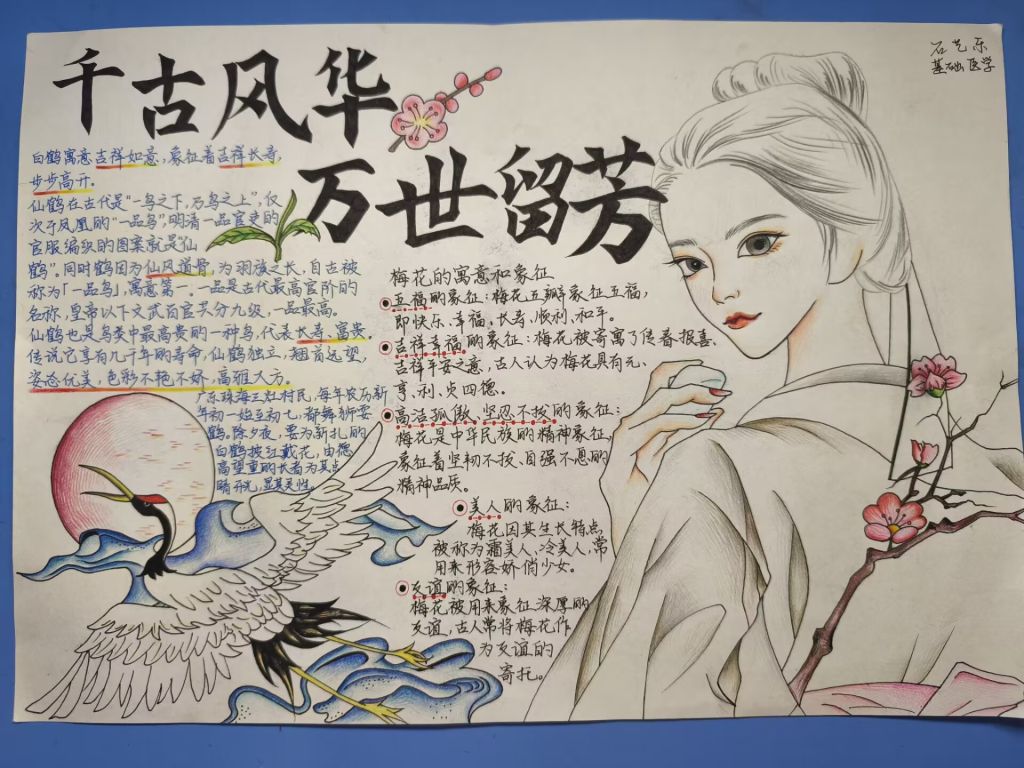 千古风华
万世留芳
石艺乐
基础医学
白鹤寓意吉祥如意，象征着吉祥长寿，
步步高升。
仙鹤在古代是“一鸟之下，万鸟之上”，仅
次于凤凰的“一品鸟”，明清一品官吏的
官服编织的图案就是“仙
鹤”。同时鹤因为仙风道骨，为羽族之长，自古被
称为「一品鸟」，寓意第一。一品是古代最高官阶的
名称，皇帝以下文武百官共分九级，一品最高。
仙鹤也是鸟类中最高贵的一种鸟，代表长寿、富贵。
传说它享有几千年的寿命，仙鹤独立，翘首远望，
姿态优美，色彩不艳不娇，高雅大方。
广东珠海三灶村民，每年农历新
年初一始至初七，都舞狮耍
鹤。除夕夜，要为新扎的
白鹤披红戴花，由德
高望重的长者为其点
睛开光，显其灵性。
梅花的寓意和象征
五福的象征：梅花五瓣象征五福，
即快乐、幸福、长寿、顺利、和平。
吉祥幸福的象征：梅花被寄寓了传春报喜、
吉祥平安之意，古人认为梅花具有元、
亨、利、贞四德。
高洁孤傲、坚忍不拔的象征：
梅花是中华民族的精神象征，
象征着坚韧不拔、自强不息的
精神品质。
美人的象征：
梅花因其生长特点，
被称为霜美人、冷美人，常
用来形容娇俏少女。
友谊的象征：
梅花被用来象征深厚的
友谊，古人常将梅花作
为友谊的
寄托。